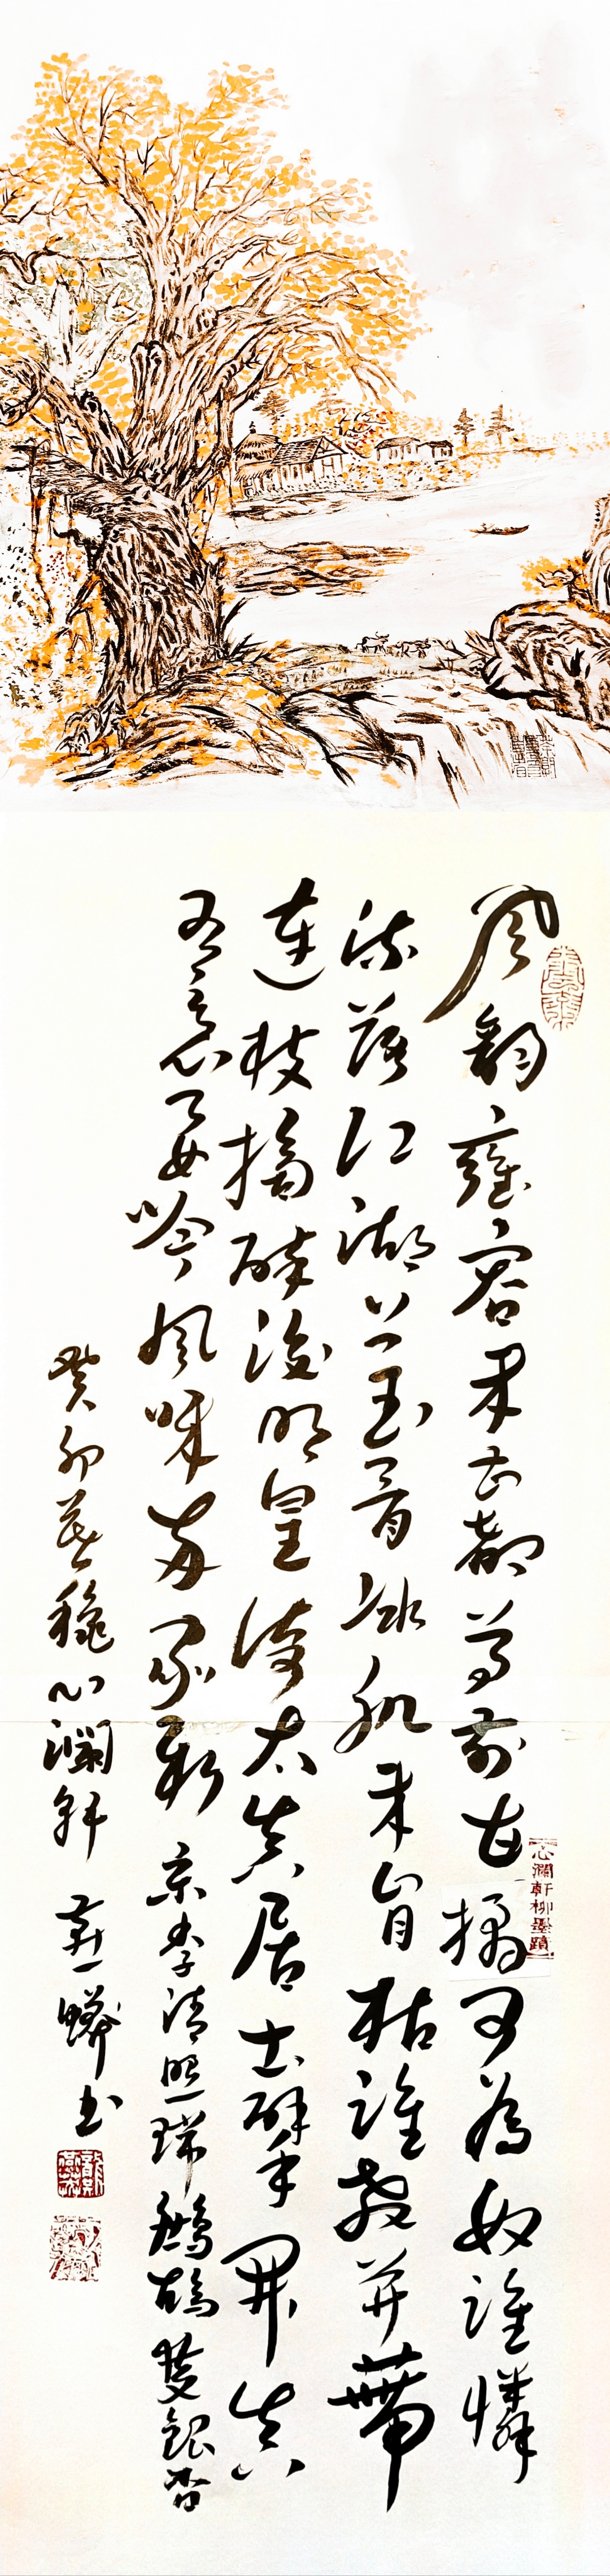 风韵雍容未甚都尊前甘橘可為奴誰憐
流落江湖上玉骨冰肌未肯枯誰教并蒂
連枝摘醉後明皇倚太真居士擘開真
有意要吟风味两家新 宋李清照瑞鹧鸪雙銀杏
癸卯暮穐心瀾軒 书
心瀾軒柳墨蹟